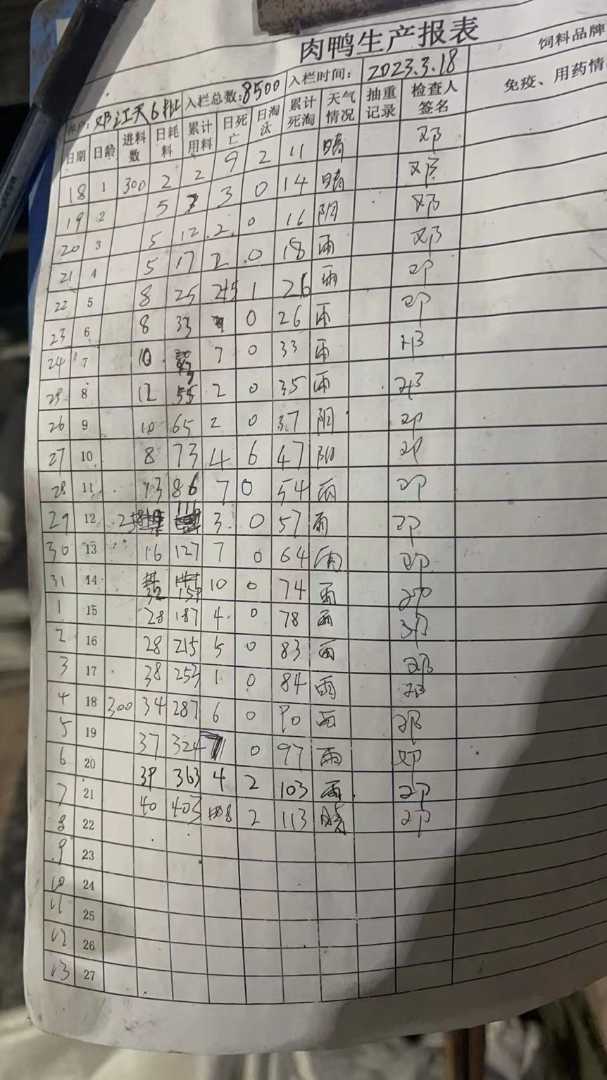 肉鸭生产报表
邓江天6批 入栏总数:8500 入栏时间: 2023.3.18 饲料品牌
日期 日龄 进料数 日耗料 累计用料 日死亡 日淘汰 累计死淘 天气情况 抽重记录 检查人签名 免疫、用药情
18 1 300 2 2 9 2 11 晴 邓
19 2 5 7 3 0 14 晴 邓
20 3 5 12 2 0 16 阴 邓
21 4 5 17 2 0 18 雨 邓
22 5 8 25 1 26 雨 邓
23 6 8 33 0 26 雨 邓
24 7 10 7 0 33 雨 邓
25 8 12 55 2 0 35 雨 邓
26 9 10 65 2 0 37 阴 邓
27 10 8 73 4 6 47 阴 邓
28 11 13 86 7 0 54 雨 邓
29 12 3 0 57 雨 邓
30 13 16 127 7 0 64 雨 邓
31 14 32 159 10 0 74 雨 邓
1 15 28 187 4 0 78 雨 邓
2 16 28 215 5 0 83 雨 邓
3 17 38 253 1 0 84 雨 邓
4 18 300 34 287 6 0 90 雨 邓
5 19 37 324 7 0 97 雨 邓
6 20 39 363 4 2 103 雨 邓
7 21 40 403 8 2 113 晴 邓
8 22
9 23
10 24
11 25
12 26
13 27